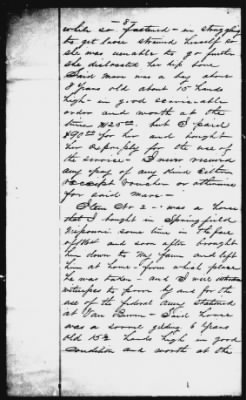 - 8 -
while so fastened - in struggling
to get loose strained herself so
she was unable to go further
she dislocated her hip bone
Said mare was a bay about
8 years old about 15 hands
high - in good serviceable
order and worth at the
time $125 00 but I paid
$90 00 for her and bought
her expressly for the use of
the service - I never received
any pay of any kind either
receipt voucher or otherwise
for said mare -
Item No. 2 - was a horse
that I bought in Springfield
Missouri some time in the face
of and soon after brought
him down to my farm and left
him at home - from which place
he was taken - and I will
witnesses to prove by and for the
use of the federal army stationed
at Van Buren - Said horse
was a sorrel gelding 6 years
old 15½ hands high in good
condition and worth at the